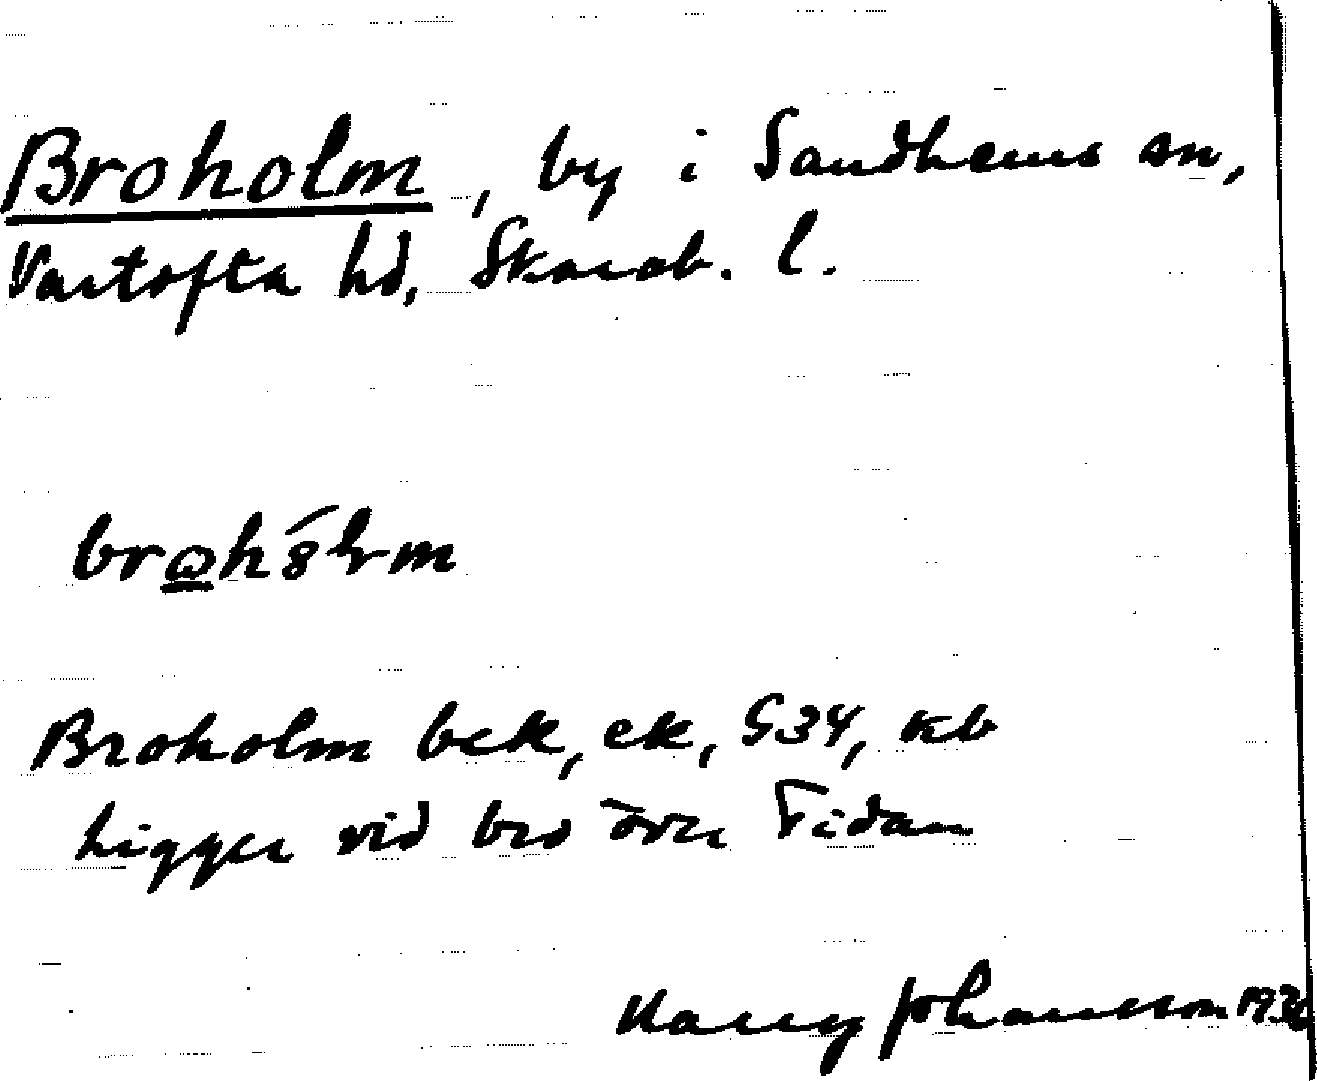 Broholm, by i Sandhems sn,
Vartofta hd, Skarab. l.
Broholm bek, ek, G34, kb
Ligger vid bro över Tidan
Harry Johansson